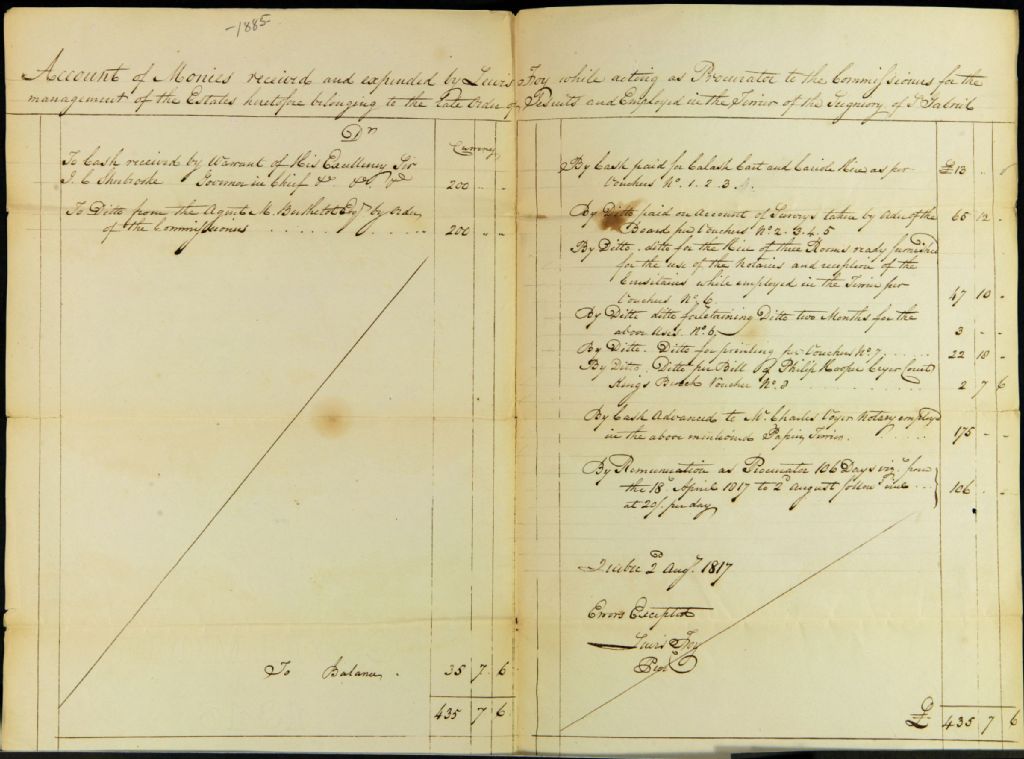 -1885-
Account of Monies received and expended by Lewis Foy while acting as Procurator to the Commissioners for the
management of the Estates heretofore belonging to the late Order of Jesuits and Employed in the Terrier of the Seigniory of St Gabriel
Dr
Currency
To Cash received by Warrant of His Excellency Sir
J. C. Sherbrooke Governor in Chief &c &c &c 200 " "
To Ditto from the Agent M. Berthelot Esqr by order
of the Commissioners 200 " "
To Balance 35 7 6
435 7 6
By Cash paid for Calash Cart and Cariole Hire as per £13 - -
Vouchers No. 1. 2. 3. 4.
By Ditto paid on Account of Surveys taken by order of the 65 12 -
Board per Vouchers No 2. 3. 4. 5
By Ditto ditto for the Hire of three Rooms ready furnished
for the use of the Notaries and reception of the
Censitaires while employed in the Terrier per
Vouchers No. 6. 47 10 -
By Ditto ditto for retaining Ditto two Months for the
above uses. No. 6. 3 - -
By Ditto. Ditto for printing per Vouchers No 7. 22 18 -
By Ditto. Ditto per Bill of Philip Hooper Cryer Court
Kings Bench Voucher No. 8 2 7 6
By Cash Advanced to Mr. Charles Voyer Notary employd
in the above mentioned Papier Terrier. 175 - -
By Remuneration as Procurator 106 Days vizt. from
the 18th April 1817 to 2d August follow.g incl.
at 20/. per day 106 - -
Quebec 2d Augt. 1817
Errors Excepted
Lewis Foy
Procr
£ 435 7 6